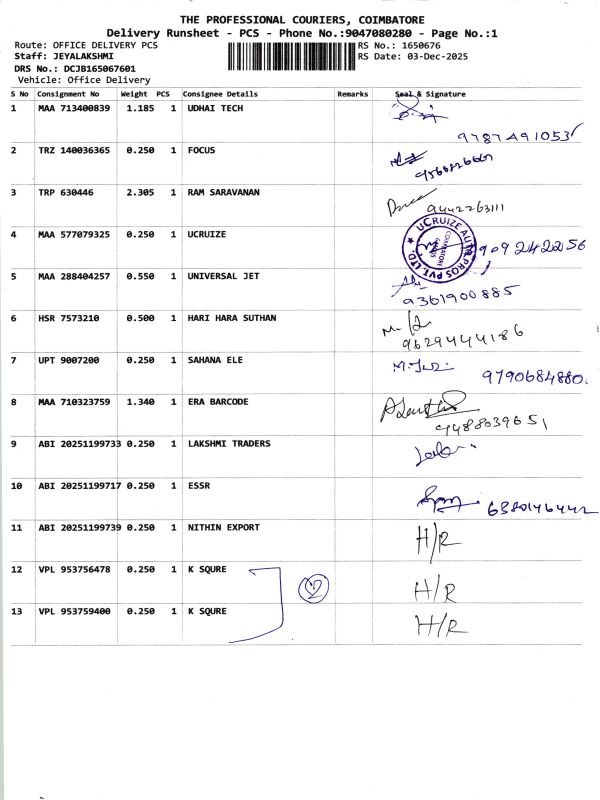 THE PROFESSIONAL COURIERS, COIMBATORE
Delivery Runsheet - PCS - Phone No.:9047080280 - Page No.:1
Route: OFFICE DELIVERY PCS RS No.: 1650676
Staff: JEYALAKSHMI RS Date: 03-Dec-2025
DRS No.: DCJB165067601
Vehicle: Office Delivery
S No Consignment No Weight PCS Consignee Details Remarks Seal & Signature
1 MAA 713400839 1.185 1 UDHAI TECH
9787491053
2 TRZ 140036365 0.250 1 FOCUS
3 TRP 630446 2.305 1 RAM SARAVANAN
9442263111
4 MAA 577079325 0.250 1 UCRUIZE
UCRUIZE AUTO PROS PVT. LTD. COIMBATORE
9092422256
5 MAA 288404257 0.550 1 UNIVERSAL JET
9361900885
6 HSR 7573210 0.500 1 HARI HARA SUTHAN
9629444186
7 UPT 9007200 0.250 1 SAHANA ELE
9790684880.
8 MAA 710323759 1.340 1 ERA BARCODE
9488039651
9 ABI 20251199733 0.250 1 LAKSHMI TRADERS
10 ABI 20251199717 0.250 1 ESSR
6380146442
11 ABI 20251199739 0.250 1 NITHIN EXPORT H/R
12 VPL 953756478 0.250 1 K SQURE 2 H/R
13 VPL 953759400 0.250 1 K SQURE H/R